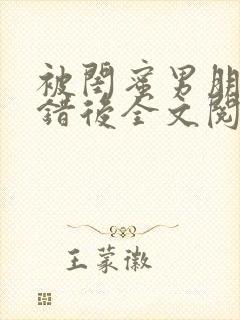 被閨蜜男朋
錯後全文閱
王蒙徽